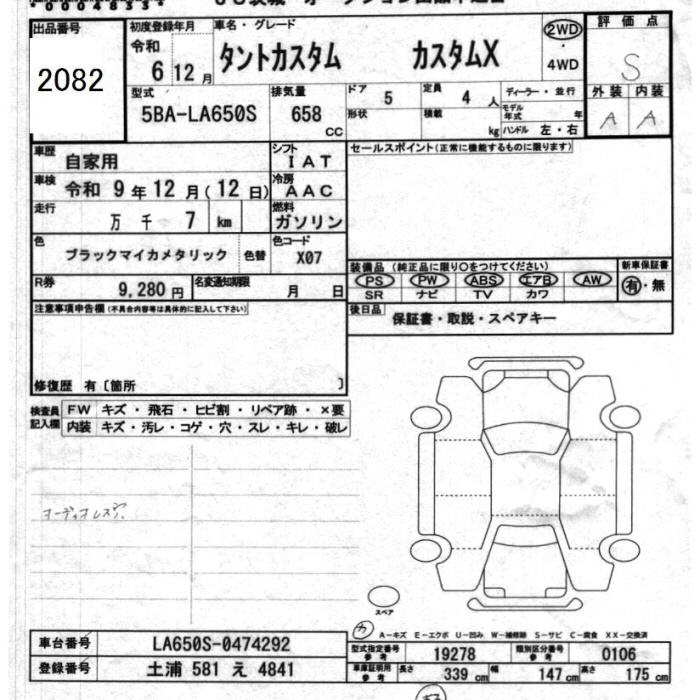 出品番号
2082
初度登録年月
令和
6 12 月
車名・グレード
タントカスタム カスタムX
2WD
・
4WD
評価点
S
外装 内装
A A
型式
5BA-LA650S
排気量
658
CC
ドア
5
定員
4 人
形状
積載
kg
ディーラー・並行
モデル年式 年
ハンドル 左・右
車歴
自家用
シフト
IAT
車検
令和 9 年 12 月(12 日)
冷房
AAC
走行
万 千 7 km
燃料
ガソリン
色
ブラックマイカメタリック
色替
色コード
X07
R券
9,280 円
名変通知期限
月 日
セールスポイント(正常に機能するものに限ります)
装備品 (純正品に限り○をつけてください)
PS PW ABS エアB AW
SR ナビ TV カワ
新車保証書
有・無
後日品
保証書・取説・スペアキー
注意事項申告欄(不具合内容等は具体的に記入して下さい)
修復歴 有〔箇所 〕
検査員
記入欄
FW キズ・飛石・ヒビ割・リペア跡・×要
内装 キズ・汚レ・コゲ・穴・スレ・キレ・破レ
オーディオレス
スペア
A-キズ E-エクボ U-凹み W-補修跡 S-サビ C-腐食 XX-交換済
車台番号
LA650S-0474292
登録番号
土浦 581 え 4841
型式指定番号
参考
19278
類別区分番号
参考
0106
車庫証明用
参考
長さ
339 cm
幅
147 cm
高さ
175 cm